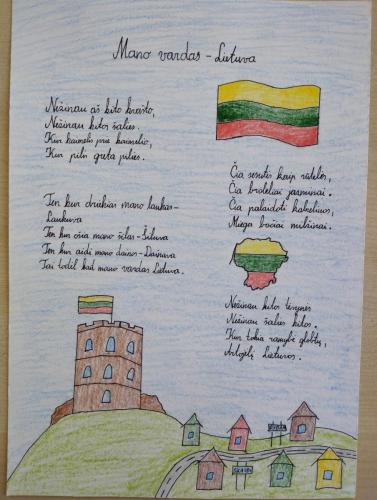 Mano vardas - Lietuva
Nežinau aš kito krašto,
Nežinau kitos šalies.
Kur kaimelis prie kaimelio,
Kur pilis greta pilies.
Ten kur driekias mano laukas-
Laukuva
Ten kur ošia mano šilas - Šiluva
Ten kur aidi mano dainos - Dainava
Tai todėl kad mano vardas Lietuva.
Čia sesutės kaip rūtelės,
Čia broleliai jazminai.
Čia palaidoti
Miega bočiai milžinai.
Nežinau kitos tėvynės
Nežinau šalies kitos.
Kur tokia ramybė globtų,
Artojėlį Lietuvos.